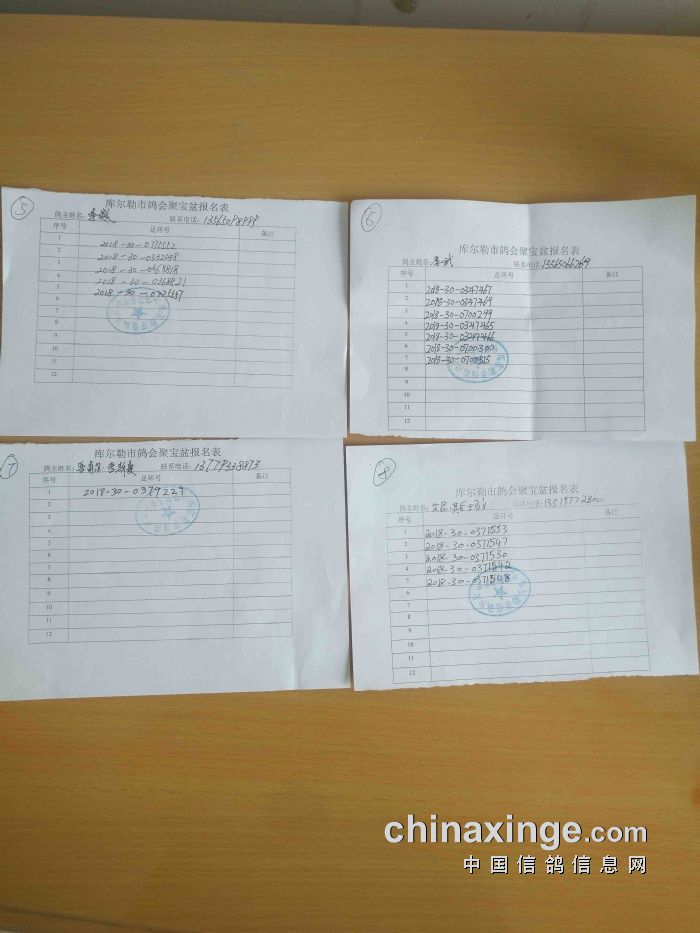 5
库尔勒市鸽会聚宝盆报名表
鸽主姓名: 李斌 联系电话: 13565098999
序号 足环号 备注
1
2 2018-30-0775552
3 2018-30-0332038
4 2018-30-0463818
5 2018-30-0368821
6 2018-30-0775557
7
8
9
10
11
12
6
库尔勒市鸽会聚宝盆报名表
鸽主姓名: 李武 联系电话: 13565066269
序号 足环号 备注
1 2018-30-0347467
2 2018-30-0347469
3 2018-30-0700299
4 2018-30-0347465
5 2018-30-0347466
6 2018-30-0700300
7 2018-30-0700315
8
9
10
11
12
7
库尔勒市鸽会聚宝盆报名表
鸽主姓名: 联系电话: 13779338873
序号 足环号 备注
1 2018-30-0379229
2
3
4
5
6
7
8
9
10
11
12
8
库尔勒市鸽会聚宝盆报名表
鸽主姓名: 联系电话: 13319772800
序号 足环号 备注
1 2018-30-0371553
2 2018-30-0371547
3 2018-30-0371530
4 2018-30-0371542
5 2018-30-0371548
6
7
8
9
10
11
12
chinaxinge.com
中国信鸽信息网